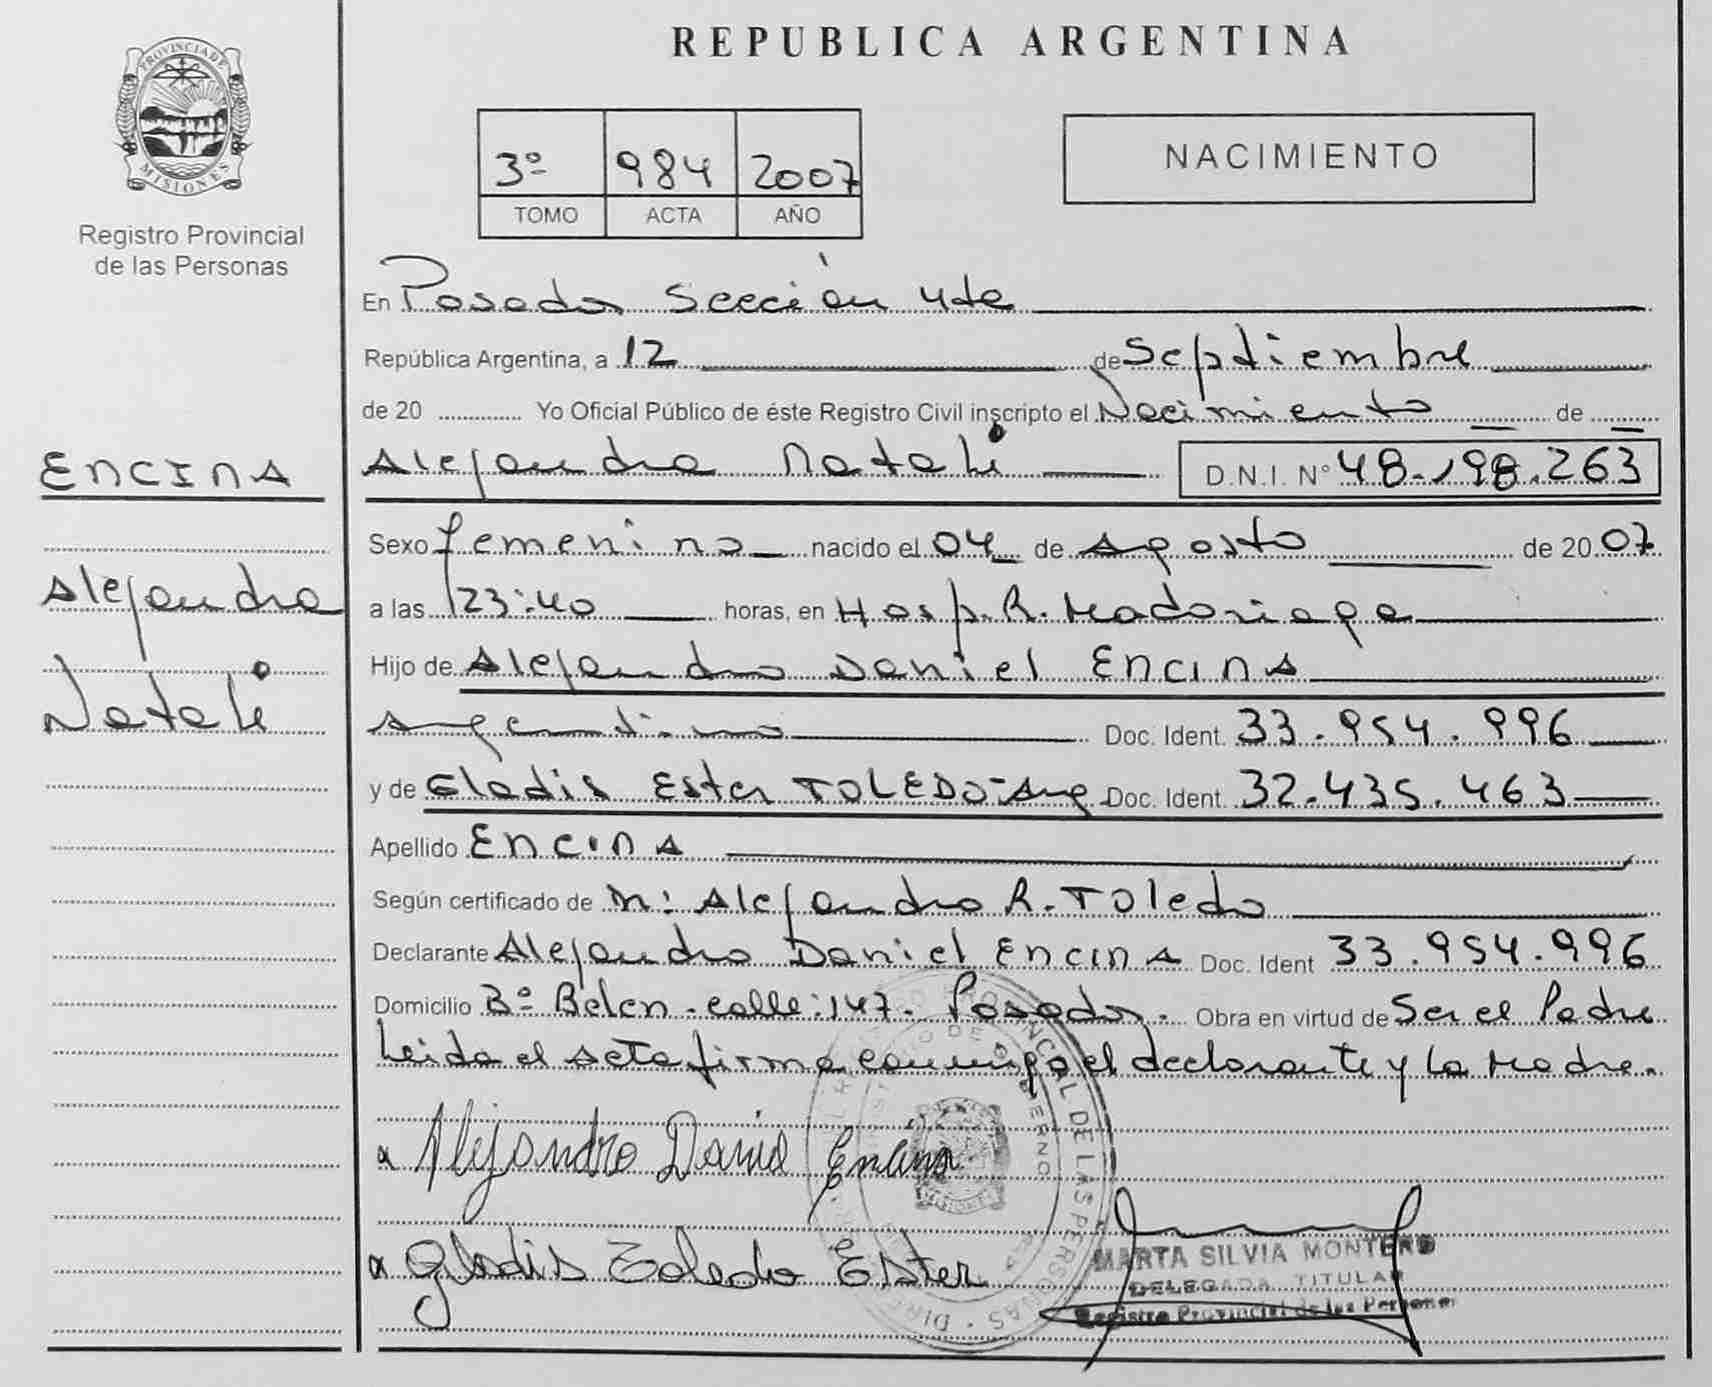 PROVINCIA DE
MISIONES
Registro Provincial
de las Personas
ENCINA
Alejandra
Natali
REPUBLICA ARGENTINA
3º 984 2007
TOMO ACTA AÑO
NACIMIENTO
En Posadas Sección 4ta
República Argentina, a 12 de Septiembre
de 20 Yo Oficial Público de éste Registro Civil inscripto el Nacimiento de
Alejandra Natali D.N.I. Nº 48.198.263
Sexo femenino nacido el 04 de Agosto de 2007
a las 23:40 horas, en Hosp. R. Madariaga
Hijo de Alejandro Daniel ENCINA
Argentino Doc. Ident. 33.954.996
y de Gladis Ester TOLEDO-Arg Doc. Ident. 32.435.463
Apellido ENCINA
Según certificado de M: Alejandro R. Toledo
Declarante Alejandro Daniel ENCINA Doc. Ident 33.954.996
Domicilio Bº Belen - calle: 147 - Posadas. Obra en virtud de Ser el Padre
Leida el acta firma conmigo el declarante y la Madre.
Alejandro Daniel Encina
Gladis Toledo Ester
MARTA SILVIA MONTERO
DELEGADA TITULAR
Registro Provincial de las Personas